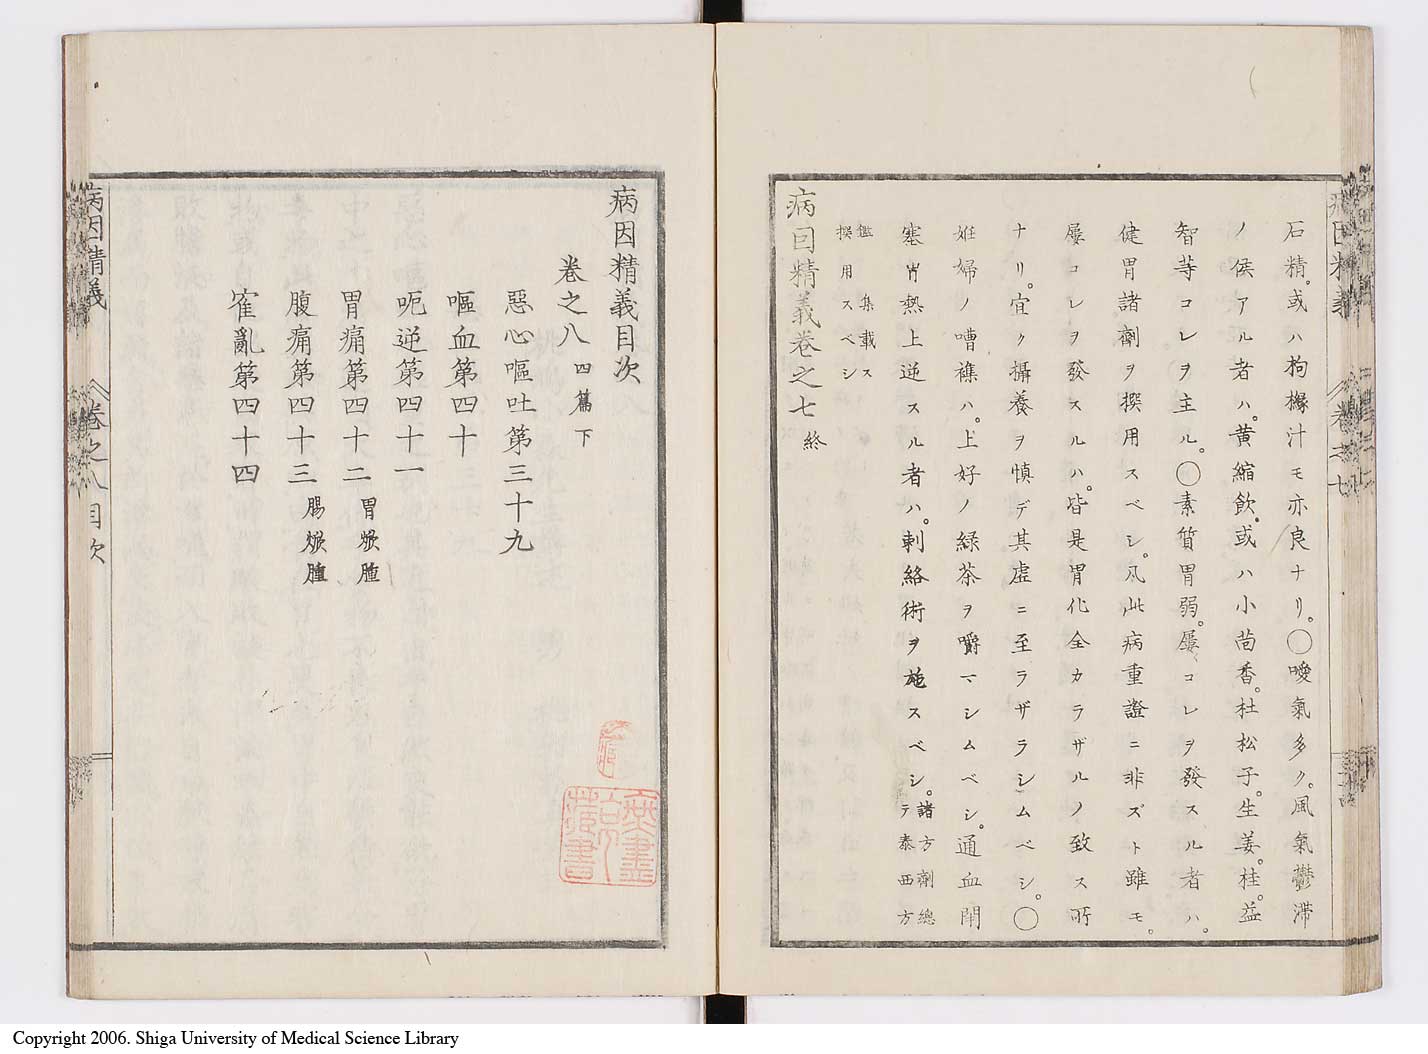 石精。或ハ枸櫞汁モ亦良ナリ。〇噯氣多ク。風氣鬱滞
ノ侯アル者ハ。黄縮飲。或ハ小茴香。杜松子。生姜。桂。益
智等コレヲ主ル。〇素質胃弱。屢コレヲ發スル者ハ。
健胃諸劑ヲ撰用スベシ。凡此病重證ニ非ズト雖モ。
屢コレヲ發スルハ。皆是胃化全カラザルノ致ス所
ナリ。宜ク攝養ヲ慎デ其虚ニ至ラザラシムベシ。〇
姙婦ノ嘈襍ハ。上好ノ緑茶ヲ嚼マシムベシ。通血閉
塞胃熱上逆スル者ハ。刺絡術ヲ施スベシ。諸方劑總テ泰西方
鑑集載ス撰用スベシ
病因精義巻之七 終
病因精義目次
巻之八 四篇下
惡心嘔吐第三十九
嘔血第四十
呃逆第四十一
胃痛第四十二 胃焮腫
腹痛第四十三 腸焮腫
霍亂第四十四
病因精義 巻之八目次